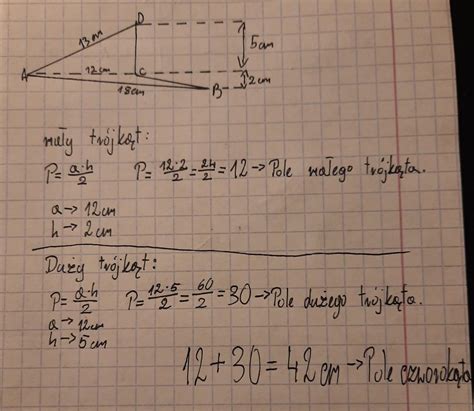 D
13 cm
5cm
A
12cm
C
2cm
18cm
B
mały trójkąt:
P= a·h/2 P= 12·2/2 = 24/2 = 12 → Pole małego trójkąta.
a → 12cm
h → 2cm
Duży trójkąt:
P= a·h/2 P= 12·5/2 = 60/2 = 30 → Pole dużego trójkąta.
a → 12cm
h → 5cm
12 + 30 = 42 cm → Pole czworokąta